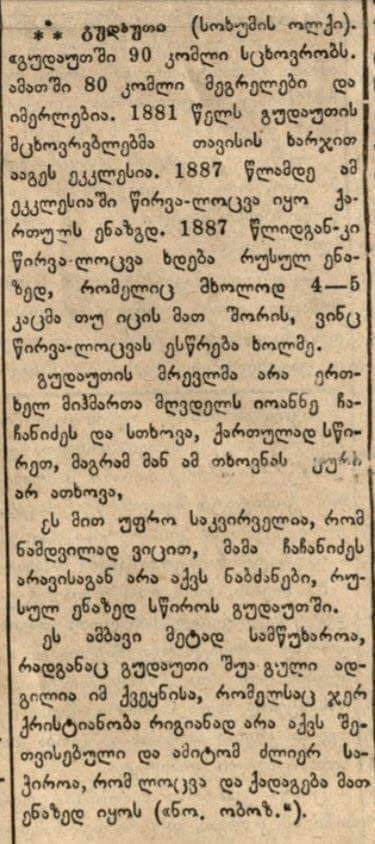 ⁂ გუდაუთა (სოხუმის ოლქი).
«გუდაუთში 90 კომლი სცხოვრობს.
ამათში 80 კომლი მეგრელები და
იმერლებია. 1881 წელს გუდაუთის
მცხოვრვბლებმა თავისის ხარჯით
ააგეს ეკკლესია. 1887 წლამდე ამ
ეკკლესიაში წირვა-ლოცვა იყო ქა-
რთულს ენაზედ. 1887 წლიდგან-კი
წირვა-ლოცვა ხდება რუსულ ენა-
ზედ, რომელიც მხოლოდ 4—5
კაცმა თუ იცის მათ შორის, ვინც
წირვა-ლოცვას ესწრება ხოლმე.
გუდაუთის მრევლმა არა ერთ-
ხელ მიჰმართა მღვდელს იოანნე ჩა-
ჩანიძეს და სთხოვა, ქართულად სწი-
რეთ, მაგრამ მან ამ თხოვნას
არ ათხოვა,
ეს მით უფრო საკვირველია, რომ
ნამდვილად ვიცით, მამა ჩაჩანიძეს
არავისაგან არა აქვს ნაბძანები, რუ-
სულ ენაზედ სწიროს გუდაუთში.
ეს ამბავი მეტად სამწუხაროა,
რადგანაც გუდაუთი შუა-გული ად-
გილია იმ ქვეყნისა, რომელსაც ჯერ
ქრისტიანობა რიგიანად არა აქვს შე-
თვისებული და ამიტომ ძლიერ სა-
ჭიროა, რომ ლოცვა და ქადაგება მათ
ენაზედ იყოს («ნო. ობოზ.“).